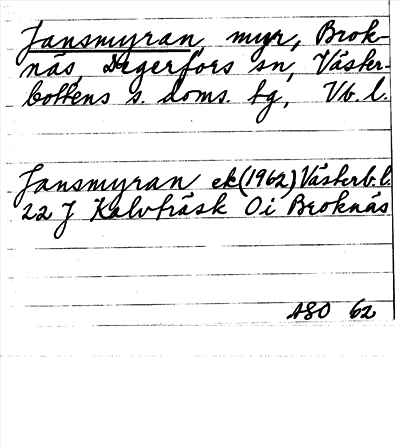 Jansmyran, myr, Brok-
näs, Degerfors sn, Väster-
bottens s. doms. tg, Vb. l.
Jansmyran ek (1962) Västerb. l.
22 J Kalvträsk Oi Broknäs
ASO 62